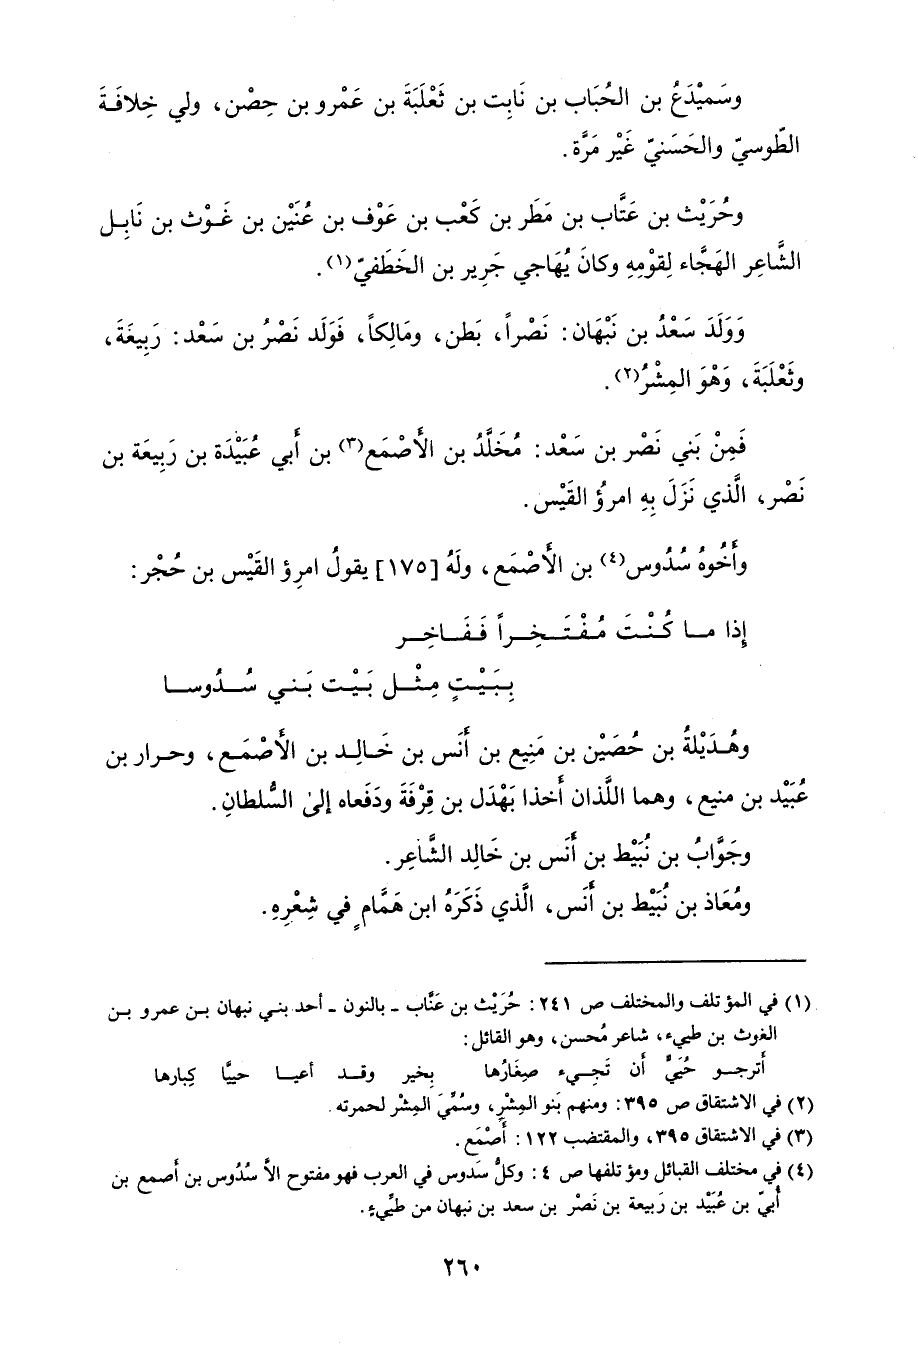 وسَميْدَعُ بن الحُبَاب بن نَابِت بن ثَعْلَبَةَ بن عَمْرو بن حِصْن، ولي خِلافَةَ
الطّوسيّ والحَسَنيّ غَيْر مَرَّة.
وحُرَيْث بن عَتَّاب بن مَطَر بن كَعْب بن عَوْف بن عُنَيْن بن غَوْث بن نَابِل
الشَّاعِر الهَجَّاء لِقوْمِهِ وكانَ يُهَاجي جَرير بن الخَطَفيّ(١).
وَوَلَدَ سَعْدُ بن نَبْهَان: نَصْراً، بَطن، ومَالِكاً، فَوَلَد نَصْرُ بن سَعْد: رَبِيعَةَ،
وثَعْلَبَةَ، وَهْوَ المِشْرُ(٢).
فَمِنْ بَني نَصْر بن سَعْد: مُخَلَّدُ بن الأَصْمَع(٣) بن أَبي عُبَيْدَة بن رَبيعَة بن
نَصْر، الَّذي نَزَلَ بِهِ امرؤُ القَيْس.
وأَخُوهُ سُدُوس(٤) بن الأَصْمَع، ولَهُ [١٧٥] يقولُ امرِؤ القَيْس بن حُجْر:
إِذا مـا كُـنْـتَ مُـفْـتَـخِـراً فَـفَـاخِـر
بِـبَـيْـتٍ مِـثْـل بَـيْـت بَـنـي سُـدُوسـا
وهُدَيْلةُ بن حُصَيْن بن مَنِيع بن أَنَس بن خَالِد بن الأَصْمَع، وحرار بن
عُبَيْد بن منيع، وهما اللَّذان أَخذا بَهْدَل بن قِرْفَةَ ودَفَعاه إلىٰ السُّلطانِ.
وجَوَّابُ بن نُبَيْط بن أَنَس بن خَالِد الشَّاعِر.
ومُعَاذ بن نُبَيْط بن أَنَس، الَّذي ذَكَرَهُ ابن هَمَّامٍ في شِعْرِهِ.
(١) في المؤتلف والمختلف ص ٢٤١: حُرَيْث بن عَنَّاب ـ بالنون ـ أحد بني نبهان بن عمرو بن
الغوث بن طيىء، شاعر مُحسن، وهو القائل:
أَترجـو حُيَيٌّ أَن تَجيء صِغَارُها بِخير وقـد أعيـا حييًّا كِبارها
(٢) في الاشتقاق ص ٣٩٥: ومنهم بَنو المِشْرِ، وسُمِّيَ المِشْر لحمرته.
(٣) في الاشتقاق ٣٩٥، والمقتضب ١٢٢: أَصْمَع.
(٤) في مختلف القبائل ومؤتلفها ص ٤: وكلُّ سَدوس في العرب فهو مفتوح الأ سُدُوس بن أصمع بن
أُبيّ بن عُبَيْد بن رَبيعة بن نَصْر بن سعد بن نبهان من طيِّيءٍ.
٢٦٠